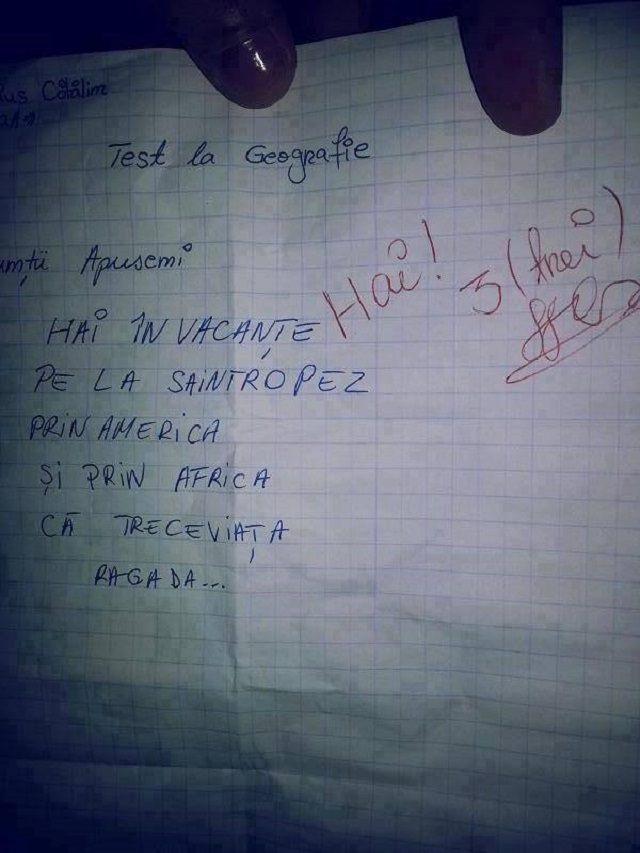 Rus Cătălin
Test la Geografie
Munții Apuseni
HAI ÎN VACANȚE
PE LA SAINTROPEZ
PRIN AMERICA
ȘI PRIN AFRICA
CĂ TRECEVIAȚA
RAGADA...
Hai!
3 (trei)